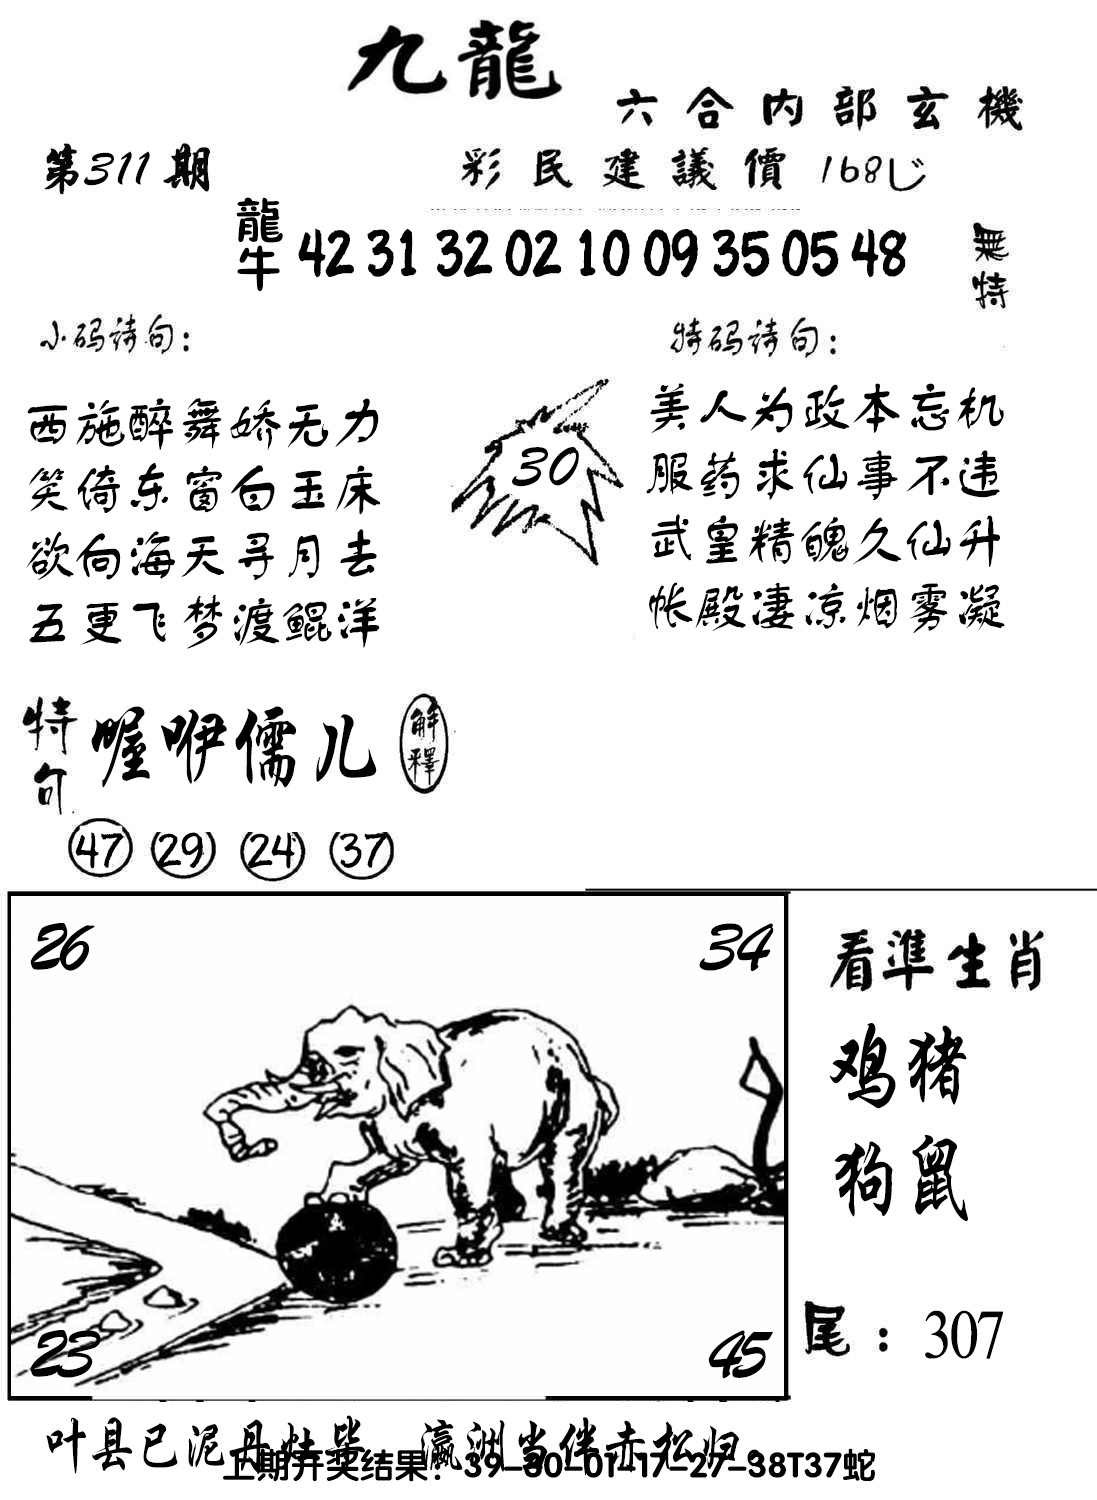 九龍
六合内部玄機
第311期
彩民建議價 168
龍牛 42 31 32 02 10 09 35 05 48 無特
小码诗句：
特码诗句：
西施醉舞娇无力
笑倚东窗白玉床
欲向海天寻月去
五更飞梦渡鲲洋
30
美人为政本忘机
服药求仙事不违
武皇精魄久仙升
帐殿凄凉烟雾凝
特句 喔咿儒儿 解釋
47 29 24 37
26 34
23 45
看準生肖
鸡猪
狗鼠
尾：307
叶县已泥丹灶毕 瀛洲当伴赤松归.
上期开奖结果：39-30-01-17-27-38T37蛇